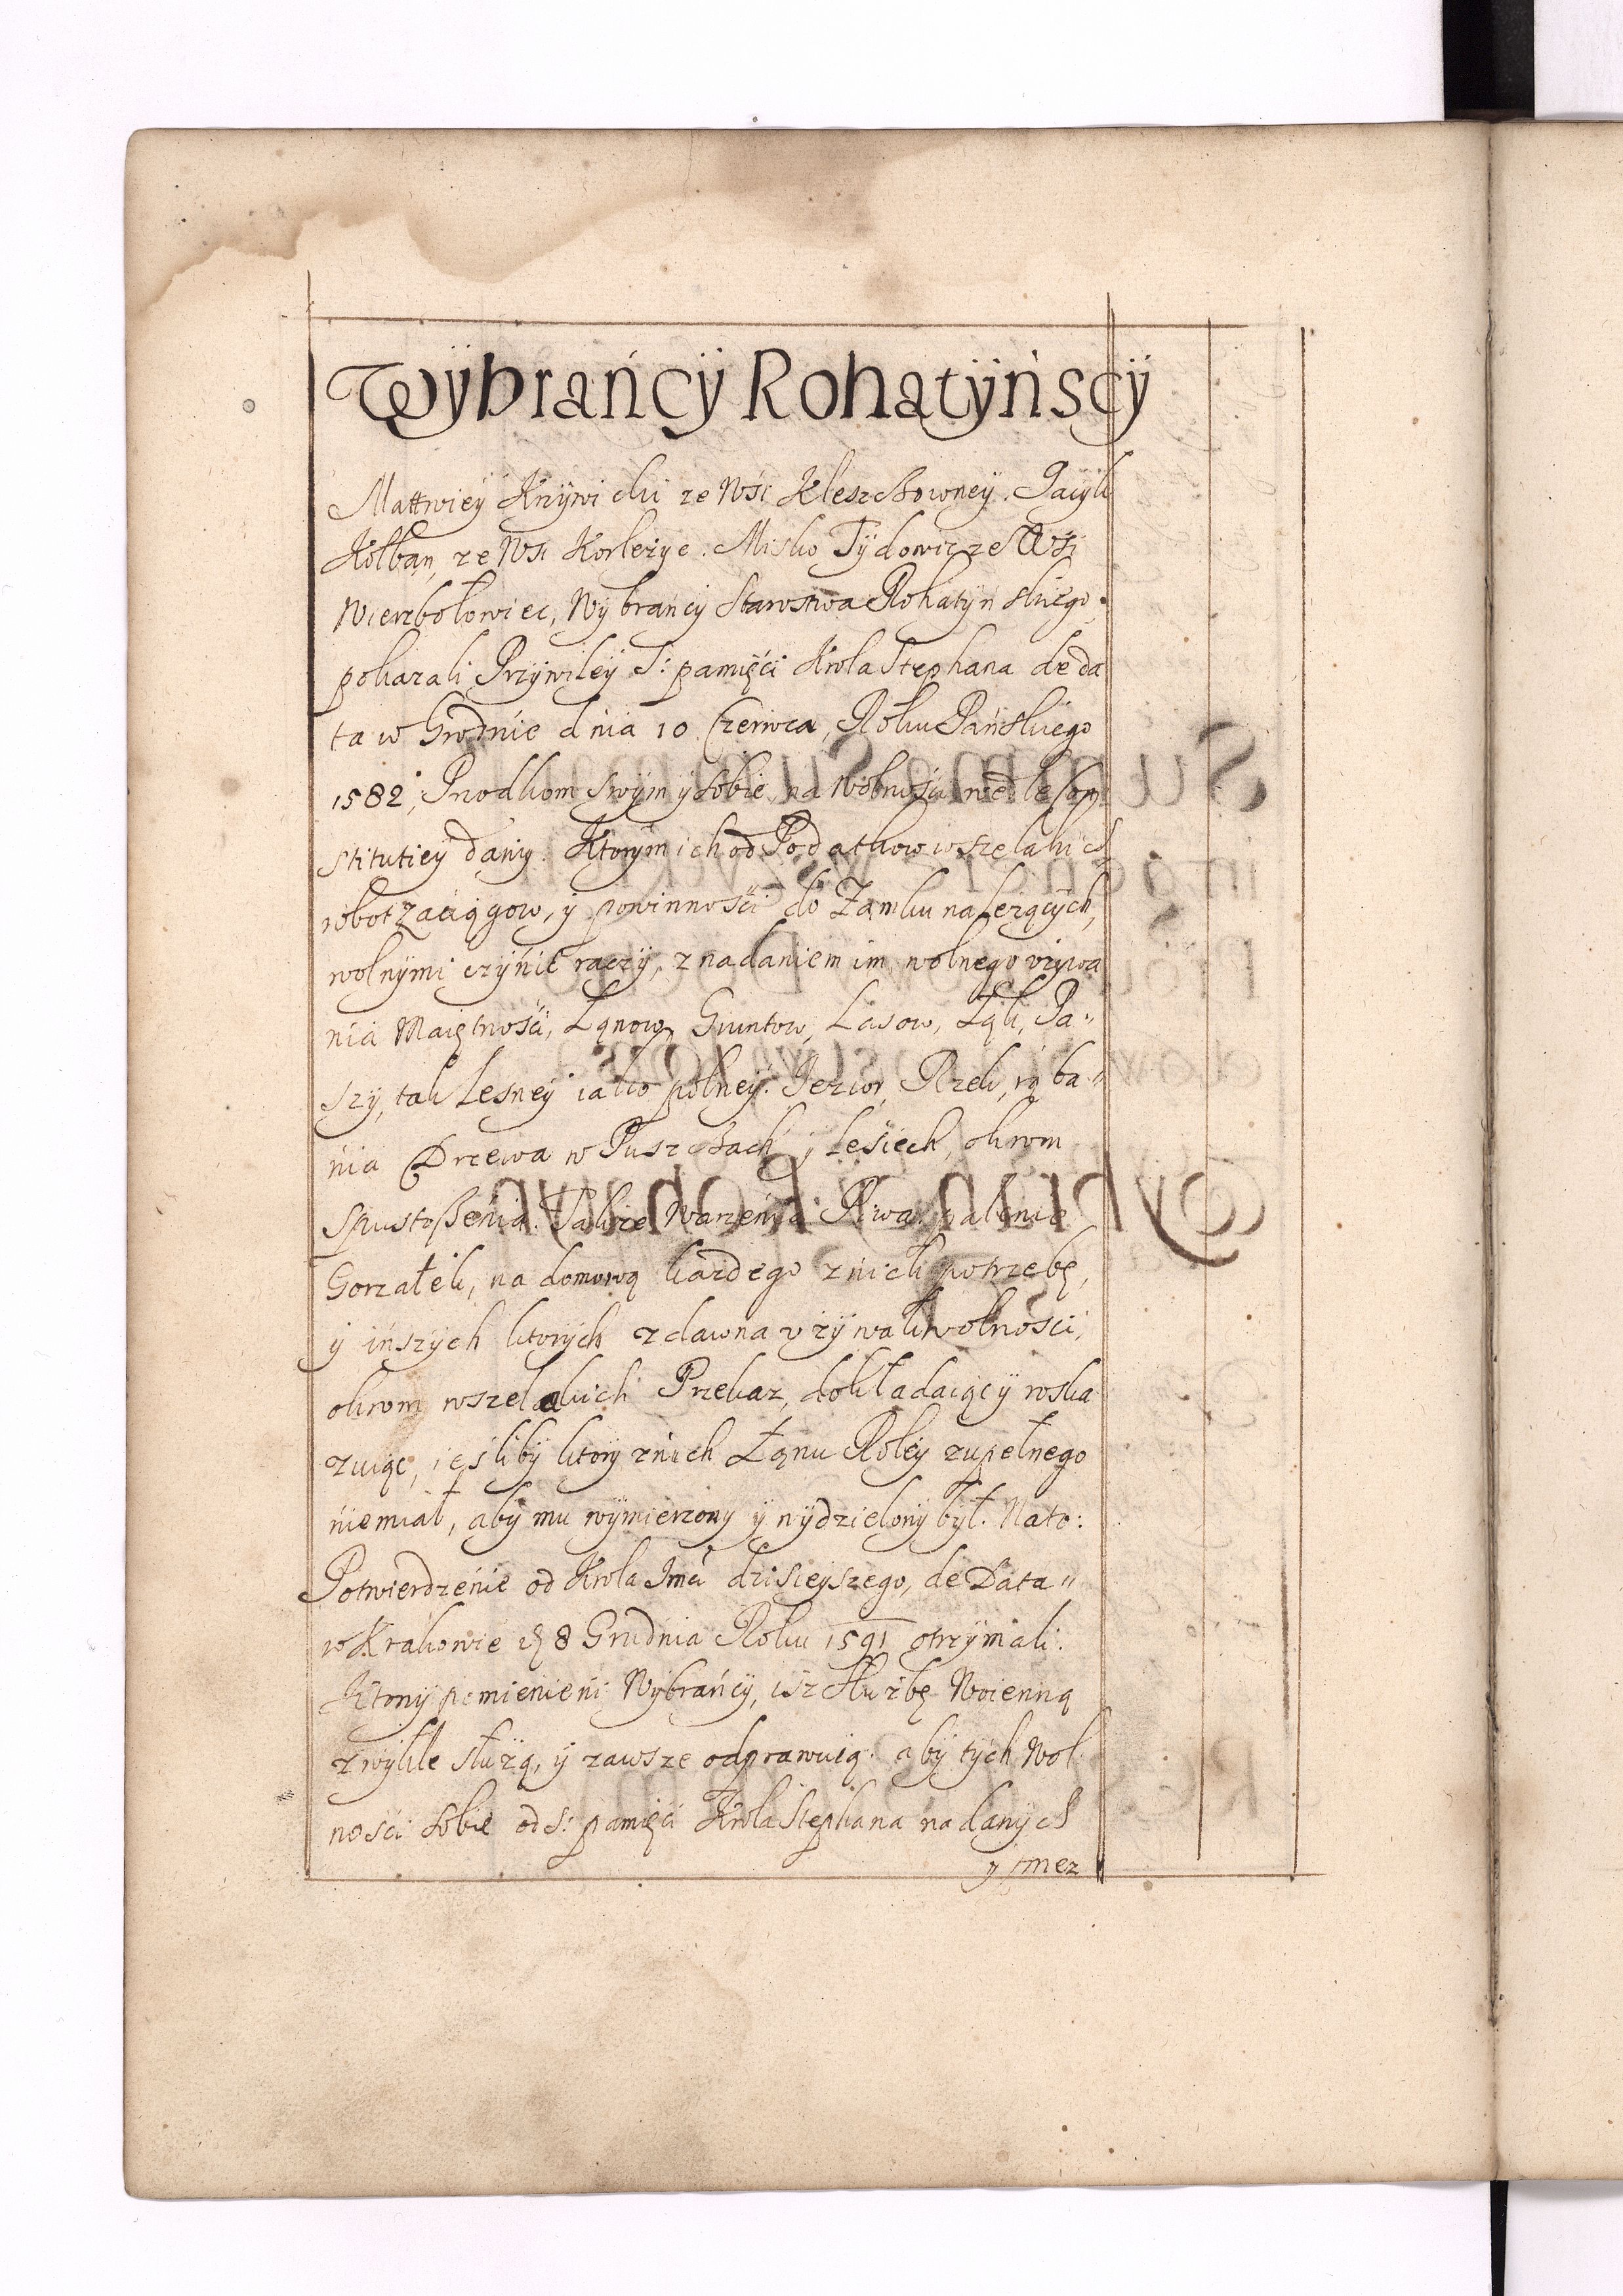 Wÿbrańcÿ Rohatÿńscÿ
Mattwieÿ Krzÿwicki ze Wsi Kleszczowneÿ. Jacÿk
Kołban, ze Wsi Korleżÿc. Misko Tÿdowicz ze Wsi
Wierzbołowiec, Wÿbrańcÿ Starostwa Rohatÿńskiego.
pokazali Przÿwileÿ S: pamięći Krola Stephana de da
ta w Grodnie dnia 10 Czerwca, Roku Pańskiego
1582, Przodkom swÿm ÿ sobie na Wolnośći wedle Con
stitutieÿ danÿ. Ktorÿm ich od Podatkow wszelakich
robot zaciągow, ÿ powinnośći do Zamku należącÿch,
wolnÿmi czÿnić raczÿ, z nadaniem im wolnego vżÿwa
nia Maiętnośći, Łąnow, Gruntow, Lasow, Łąk, Pa„
szÿ, tak Lesneÿ iako polneÿ. Jezior, Rzek, rąba„
nia Drzewa w Puszczach ÿ lesiech, okrom
Spustoßenia. Także Warzenia Piwa, palenie
Gorzałek, na domową każdego z nich potrzebę,
ÿ inszÿch ktorÿch zdawna vżÿwali wolnośći,
okrom wszelakich Przekaz, dokładaiąc ÿ roska
zuiąc, ieslibÿ ktorÿ z nich Łąnu Roleÿ zupełnego
niemiał, abÿ mu wÿmierzonÿ ÿ wÿdzielonÿ bÿł. Nato:
Potwierdzenie od Krola Jmći dzisieÿszego, de Data„
w Krakowie 8 Grudnia Roku 1591 otrzÿmali.
Ktorÿ pomienieni Wÿbrańcÿ, iż Służbę Woienną
zwÿkle służą, ÿ zawsze odprawuią. abÿ tÿch Wol
nośći sobie od S: pamięći Krola Stephana nadanÿch